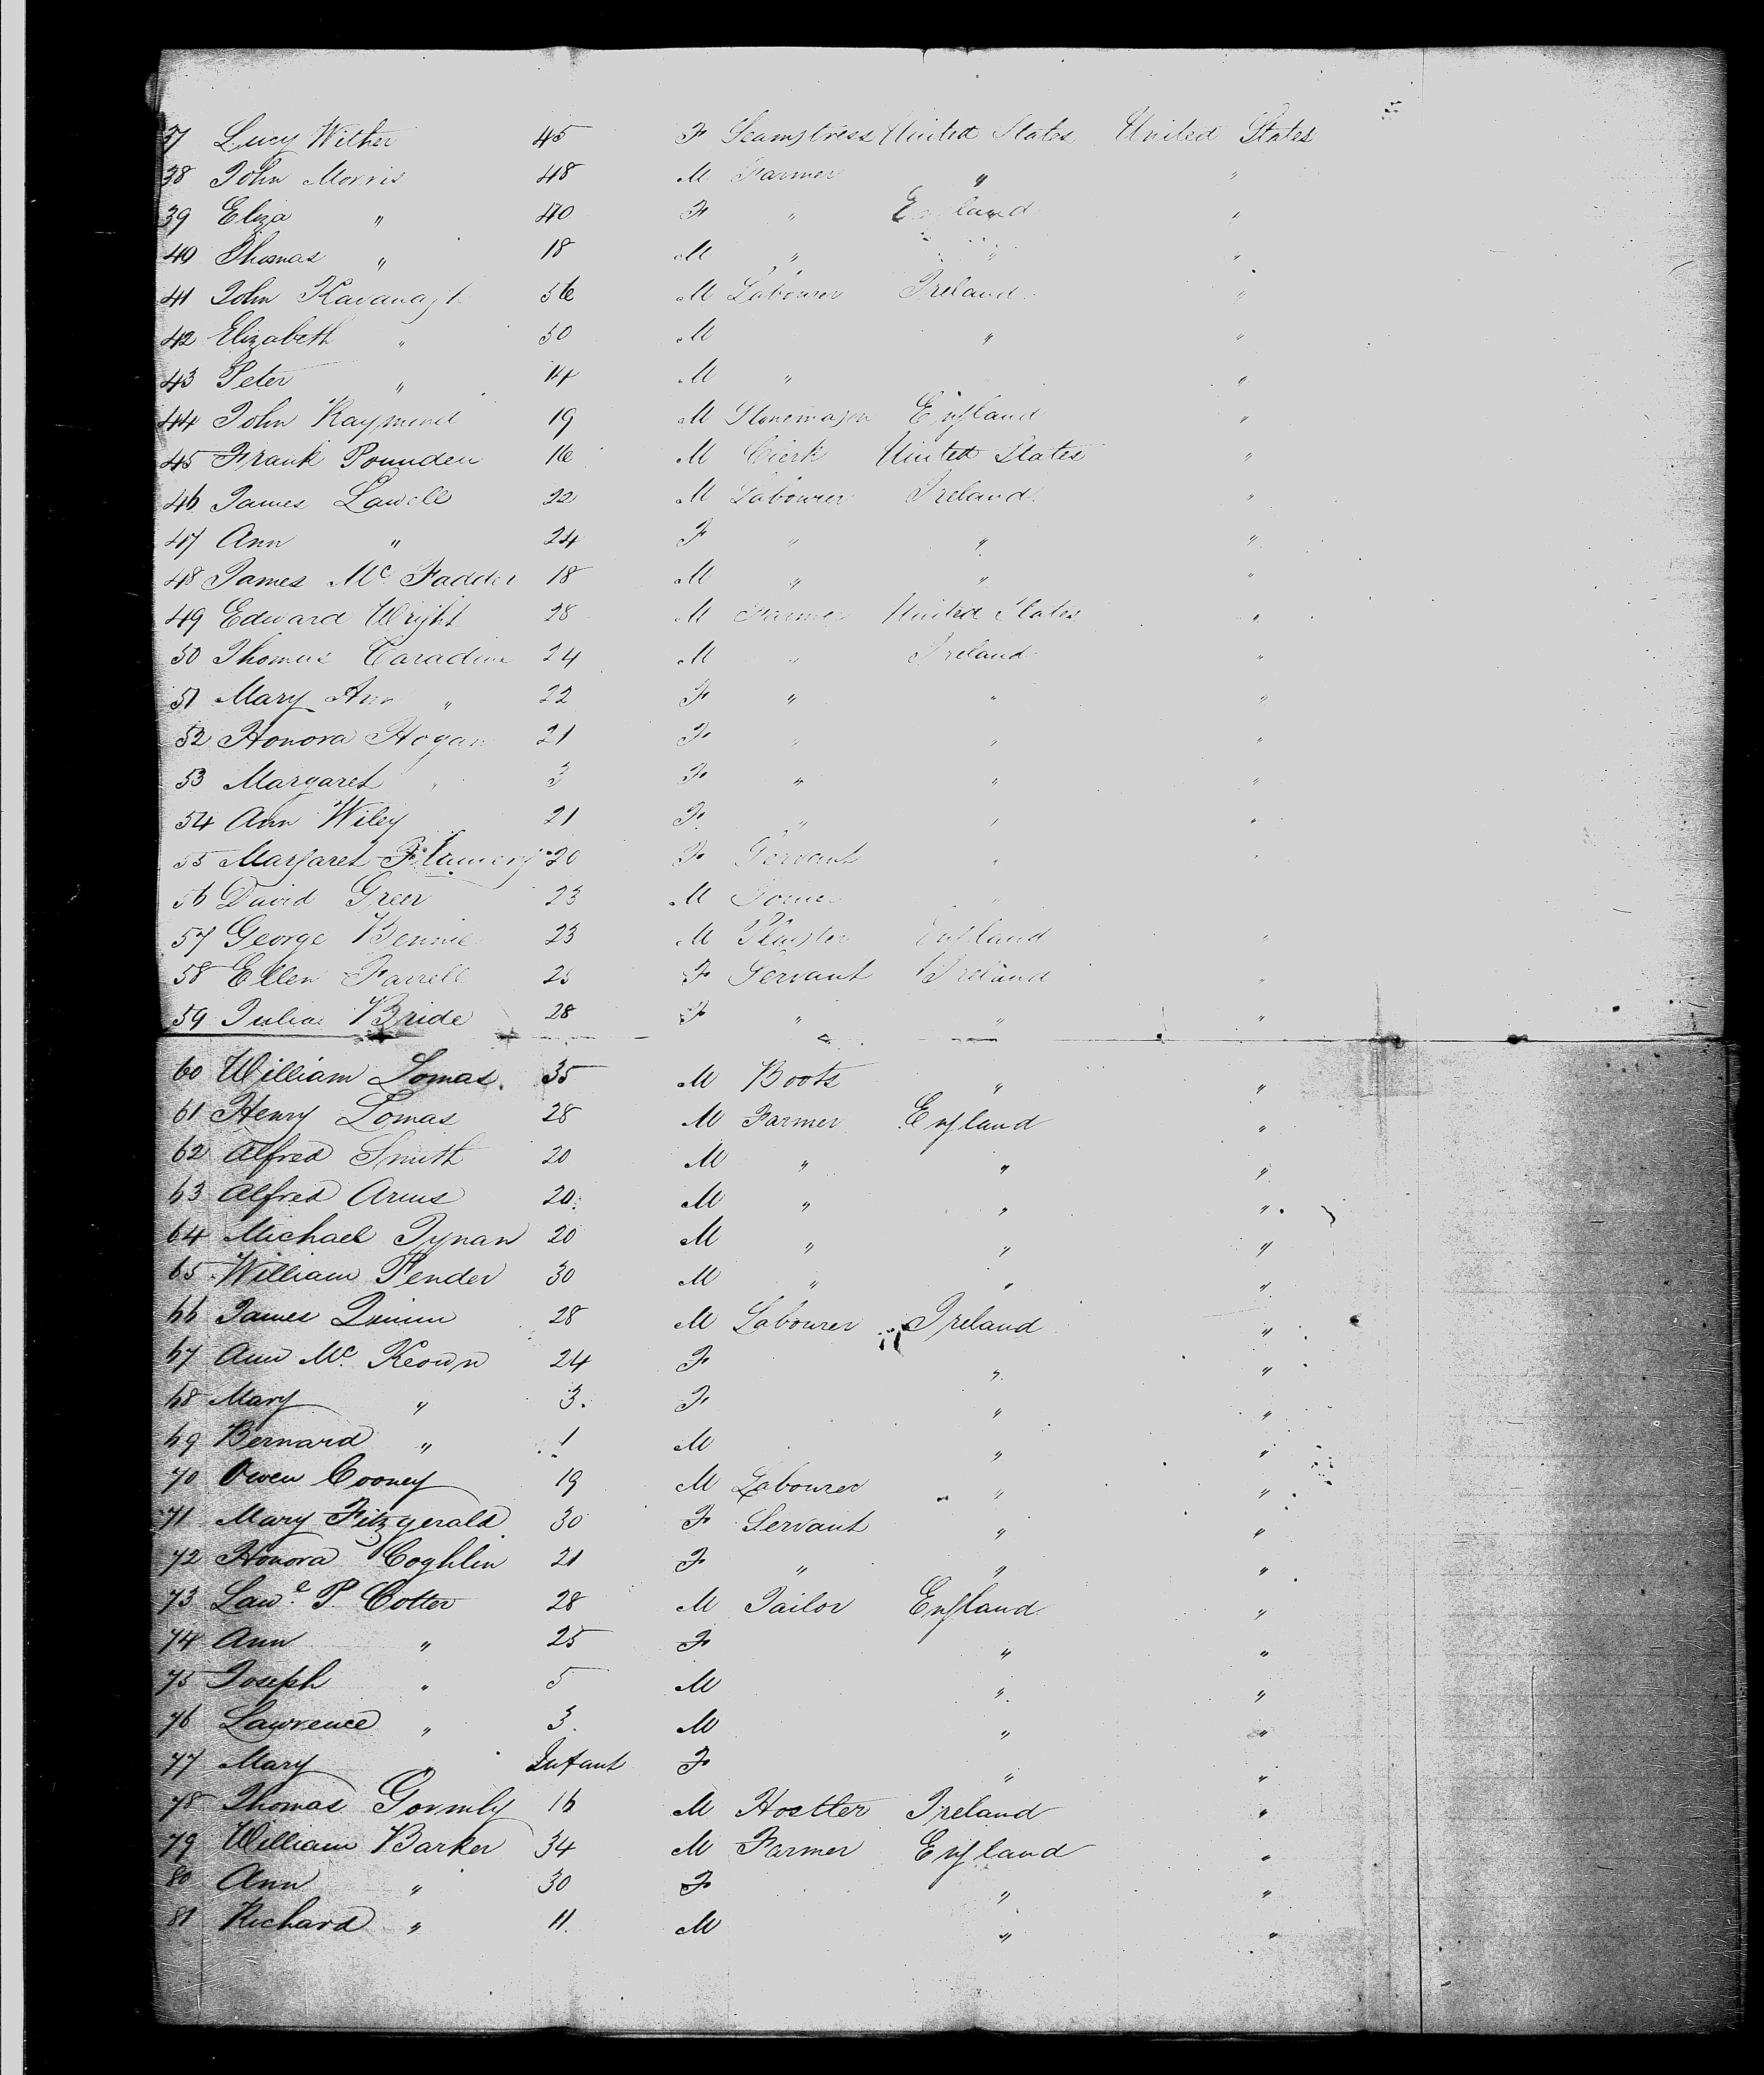 37 Lucy Wither 45 F Seamstress United States United States
38 John Morris 48 M Farmer " "
39 Eliza " 40 F " England "
40 Thomas " 18 M " " "
41 John Kavanagh 56 M Labourer Ireland "
42 Elizabeth " 50 M " "
43 Peter " 14 M " "
44 John Raymond 19 M Stonemason England "
45 Frank Pounden 16 M Clerk United States "
46 James Lawell 22 M Labourer Ireland "
47 Ann " 24 F " " "
48 James Mc Fadder 18 M " " "
49 Edward Wright 28 M Farmer United States "
50 Thomas Caradine 24 M " Ireland "
51 Mary Ann " 22 F " " "
52 Honora Hogan 21 F " " "
53 Margaret " 3 F " " "
54 Ann Wiley 21 F " " "
55 Margaret 20 F Servant " "
56 David Greer 23 M "
57 George Bennie 23 M England "
58 Ellen Farrell 25 F Servant Ireland "
59 Julia Bride 28 F " " "
60 William Lomas 35 M Boots " "
61 Henry Lomas 28 M Farmer England "
62 Alfred Smith 20 M " " "
63 Alfred Arms 20 M " " "
64 Michael Tynan 20 M " " "
65 William Pender 30 M " " "
66 James Quinn 28 M Labourer Ireland "
67 Ann Mc. Keown 24 F " "
68 Mary " 3. F " "
69 Bernard " 1 M " "
70 Owen Cooney 19 M Labourer " "
71 Mary Fitzgerald 30 F Servant " "
72 Honora Coghlin 21 F " " "
73 Lawe. P. Cotter 28 M Tailor England "
74 Ann " 25 F " "
75 Joseph " 5 M " "
76 Lawrence " 3. M " "
77 Mary " Infant F " "
78 Thomas Gormly 16 M Hostler Ireland "
79 William Barker 34 M Farmer England "
80 Ann " 30 F " "
81 Richard " 11. M " "